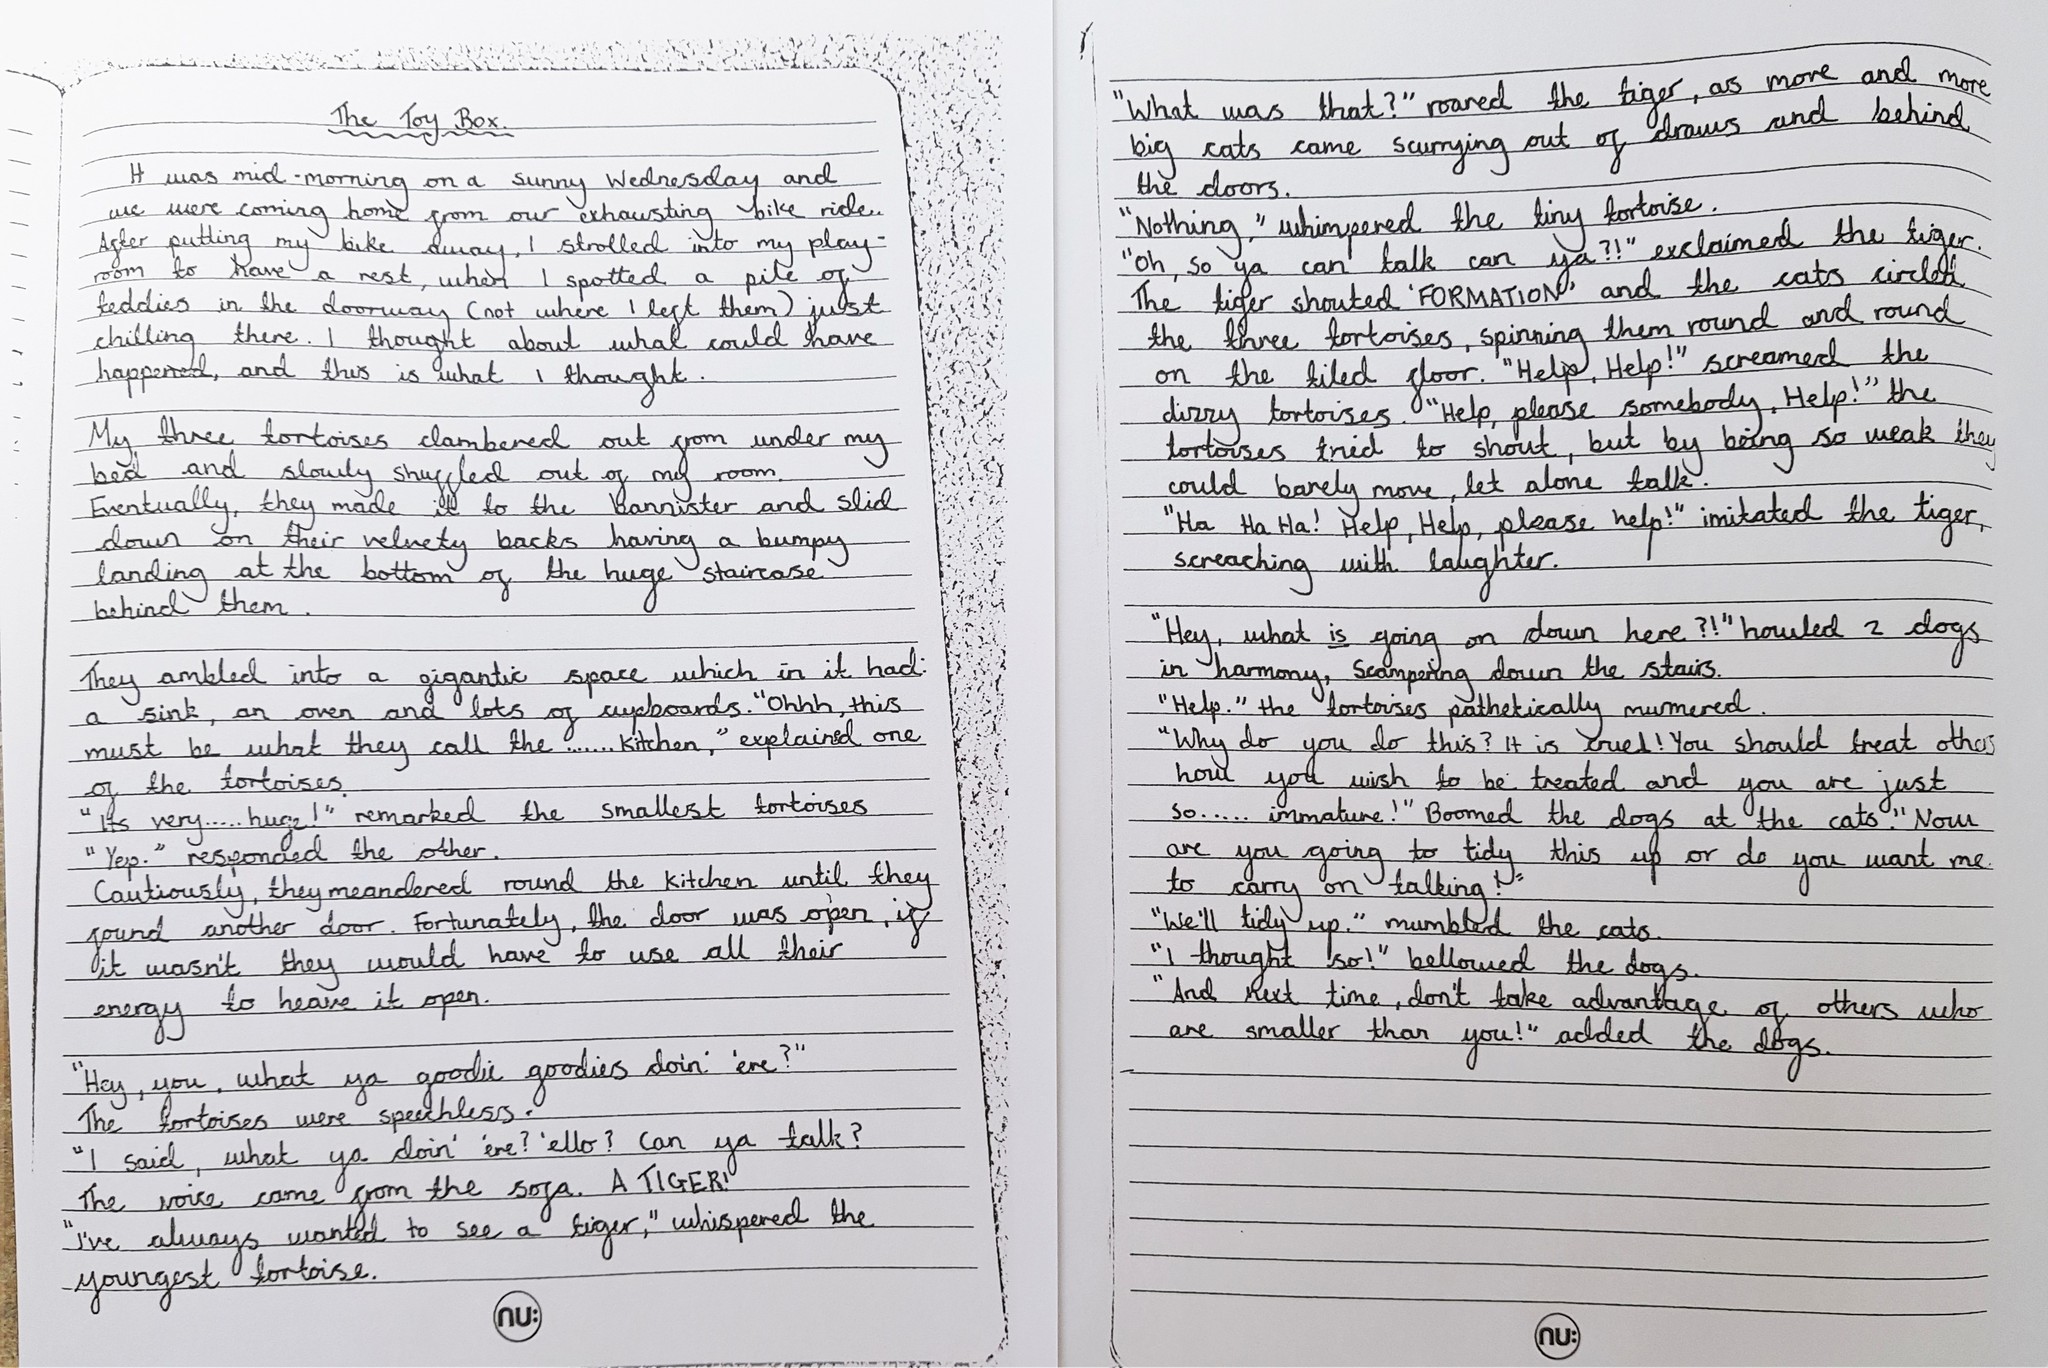 The Toy Box.
It was mid-morning on a sunny Wednesday and
we were coming home from our exhausting bike ride.
After putting my bike away, I strolled into my play-
room to have a rest, when I spotted a pile of
teddies in the doorway (not where I left them) just
chilling there. I thought about what could have
happened, and this is what I thought.
My three tortoises clambered out from under my
bed and slowly shuffled out of my room.
Eventually, they made it to the bannister and slid
down on their velvety backs having a bumpy
landing at the bottom of the huge staircase
behind them.
They ambled into a gigantic space which in it had:
a sink, an oven and lots of cupboards. "Ohhh, this
must be what they call the ....... kitchen," explained one
of the tortoises.
"Its very.....huge!" remarked the smallest tortoises
"Yep." responded the other.
Cautiously, they meandered round the kitchen until they
found another door. Fortunately, the door was open, if
it wasn't they would have to use all their
energy to heave it open.
"Hey, you, what ya goodie goodies doin' 'ere?"
The tortoises were speechless.
"I said, what ya doin' 'ere? 'ello? Can ya talk?
The voice came from the sofa. A TIGER!
"I've always wanted to see a tiger," whispered the
youngest tortoise.
nu:
"What was that?" roared the tiger, as more and more
big cats came scurrying out of draws and behind
the doors.
"Nothing," whimpered the tiny tortoise.
"Oh, so ya can talk can ya?!" exclaimed the tiger.
The tiger shouted 'FORMATION' and the cats circled
the three tortoises, spinning them round and round
on the tiled floor. "Help, Help!" screamed the
dizzy tortoises. "Help, please somebody, Help!" the
tortoises tried to shout, but by being so weak they
could barely move, let alone talk.
"Ha Ha Ha! Help, Help, please help!" imitated the tiger,
screaching with laughter.
"Hey, what is going on down here?!" howled 2 dogs
in harmony, scampering down the stairs.
"Help." the tortoises pathetically murmered.
"Why do you do this? It is cruel! You should treat others
how you wish to be treated and you are just
so...... immature!" Boomed the dogs at the cats. "Now
are you going to tidy this up or do you want me
to carry on talking!"
"We'll tidy up." mumbled the cats.
"I thought so!" bellowed the dogs.
"And next time, don't take advantage of others who
are smaller than you!" added the dogs.
nu: